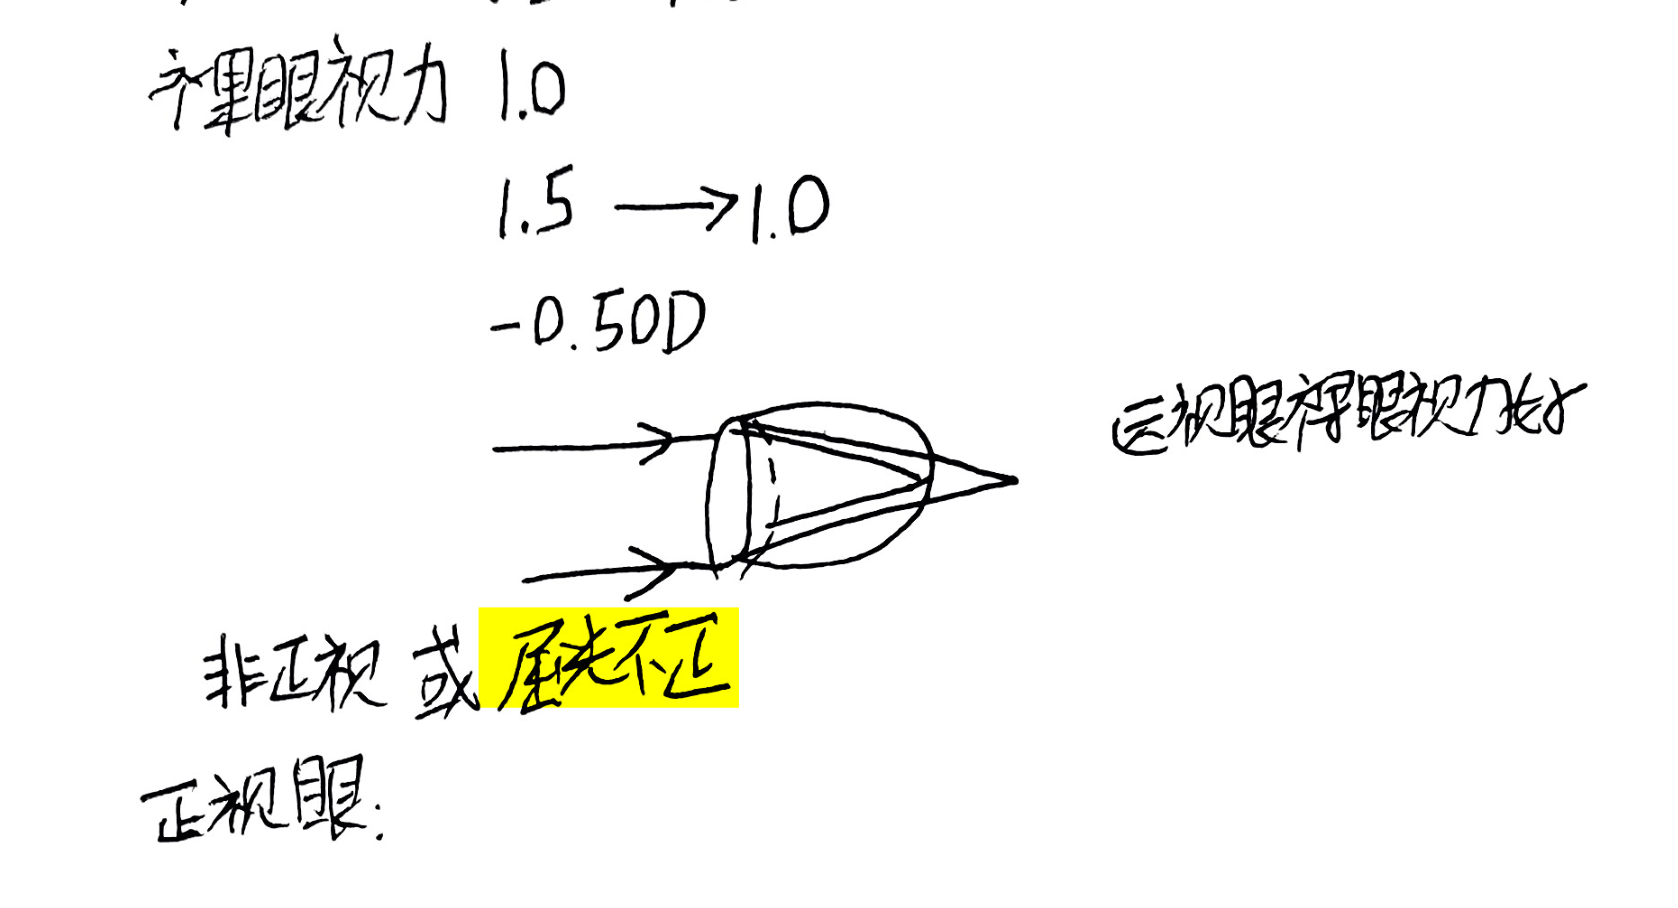 裸眼视力 1.0
1.5 → 1.0
-0.50D
远视眼裸眼视力好
非正视 或 屈光不正
正视眼: